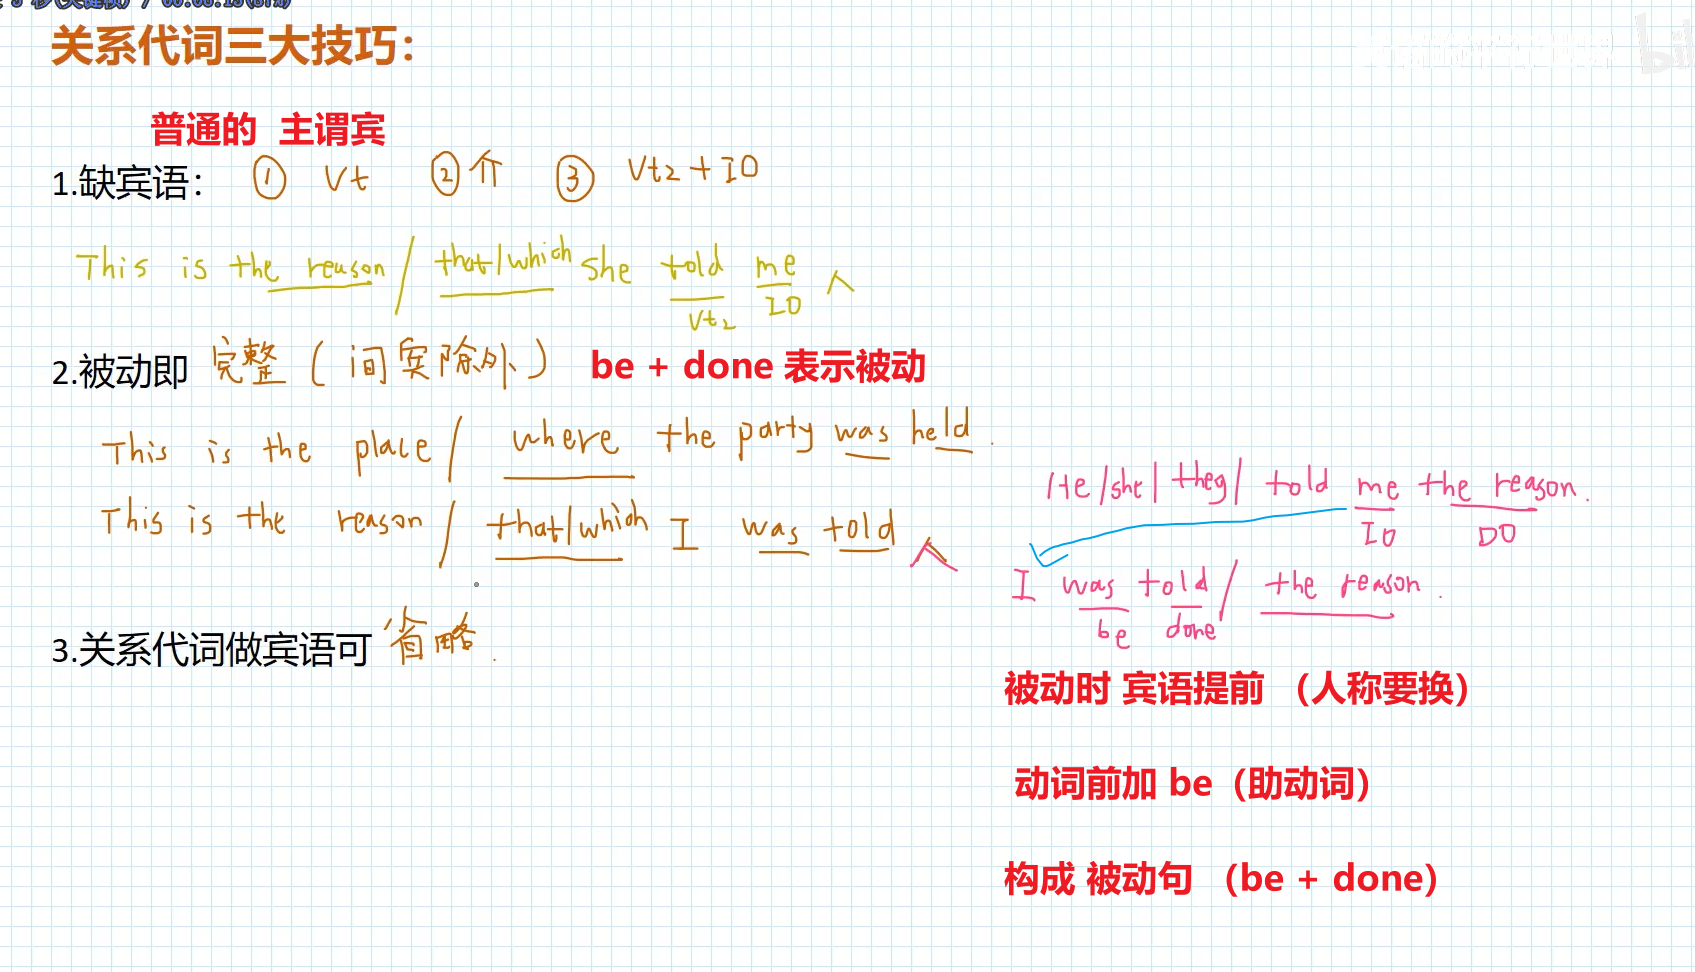 关系代词三大技巧：
普通的 主谓宾
1.缺宾语： ① Vt ② 介 ③ Vt2 + IO
This is the reason / that/which She told me
Vt2 IO
2.被动即 完整 ( 间宾除外 ) be + done 表示被动
This is the place / where the party was held .
This is the reason / that/which I was told
3.关系代词做宾语可 省略 .
He/she/they/ told me the reason .
IO DO
I was told / the reason .
be done
被动时 宾语提前 （人称要换）
动词前加 be（助动词）
构成 被动句 （be + done）